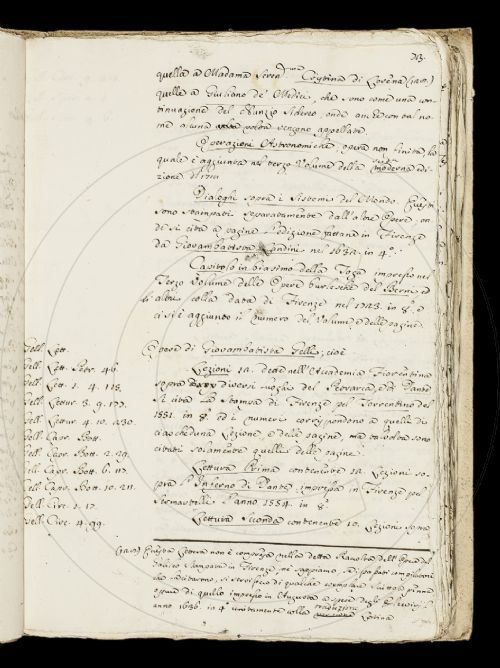 213.
quella a Madama Seren.ma Cristina di Lorena (1212.)
quelle a Giuliano de' Medici, che sono come una con-
tinuazione del Nunzio Sidereo, onde anche con tal no-
me alcuna volta vengono appellate.
Operazioni Astronomiche, opera non finita, la
quale è aggiunta nel terzo Volume della moderna edi-
zione di
Dialoghi sopra i Sistemi del Mondo. Questi
sono stampati separatamente dall'altre Opere, on
de si cita a pagine l'edizione fattane in Firenze
da Giovambatista Landini nel 1632. in 4.°
Capitolo in biasimo della Toga impresso nel
Terzo Volume delle Opere burlesche del Berni, ed
altri colla data di Firenze nel 1723. in 8.° e
ci si è aggiunto il numero del Volume, e delle pagine.
Opere di Giovambatista Gelli; cioè
Lezioni 12. dette nell'Accademia Fiorentina
sopra diversi luoghi del Petrarca, e di Dante
Si cita la stampa di Firenze pel Torrentino del
1551. in 8. ed i numeri corrispondono a quelle di
ciascheduna Lezione, e delle pagine, ma talvolta sono
citati solamente quelli delle pagine.
Lettura Prima contenente 12. Lezioni so-
pra l'Inferno di Dante, impressa in Firenze pel
Sermartelli l'anno 1554. in 8.°
Lettura Seconda contenente 10. Lezioni sopra
Gell. Lett.
Gell. Lett. Petr. 46.
Gell. Lett. 1. 4. 118.
Gell. Lettur. 3. 9. 177.
Gell. Lettur. 4. 10. 230.
Gell. Capr. Bott.
Gell. Capr. Bott. 2. 29.
Gell. Capr. Bott. 6. 117.
Gell. Capr. Bott. 10. 211.
Gell. Circ. 1. 17.
Gell. Circ. 4. 99.
(1212) Questa Lettera non è compresa nella detta Raccolta dell'Opere del
Galileo stampate in Firenze, nè sappiamo, se i passati compilatori
che
oppure di quello impresso in Augusta a spese degli Elzevirj l'
anno 1636. in 4.° unitamente colla traduzione
Latina